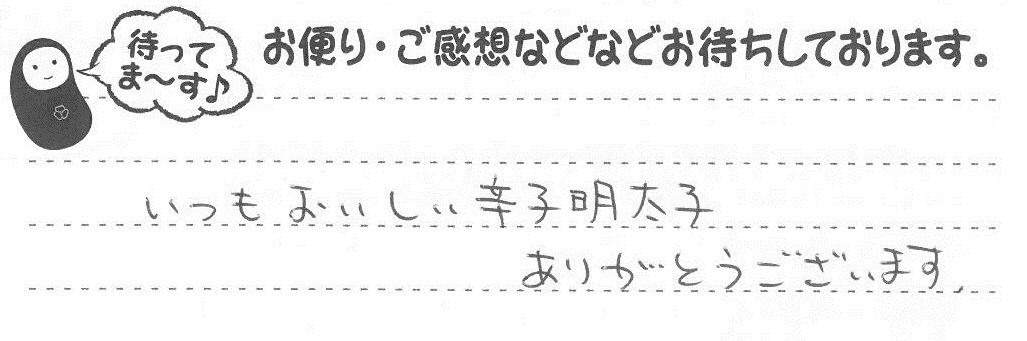 待って
ま〜す♪
お便り・ご感想などなどお待ちしております。
いつもおいしい辛子明太子
ありがとうございます.